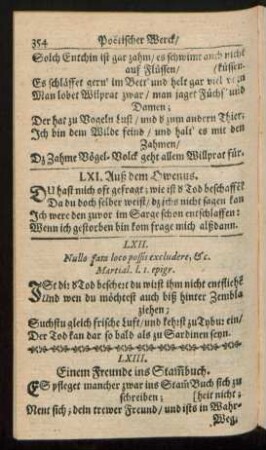 354 Poëtischer Werck/
Solch Entchin ist gar zahm/ es schwimt auch nicht
auf Flüssen/ (küssen.
Es schläffet gern' im Bett' und helt gar viel von
Man lobet Wilprat zwar/ man jaget Füchs' und
Damen;
Der hat zu Vogeln Lust/ und d' zum andern Thier.
Ich bin dem Wilde feind/ und halt' es mit den
Zahmen/
Dz Zahme Vögel-Volck geht allem Willprat für.
LXI. Auß dem Owenus.
DU hast mich oft gefragt; wie ist d' Tod beschaffē?
Da du doch selber weist/ dz ichs nicht sagen kan
Ich were den zuvor im Sarge schon entschlaffen:
Wenn ich gestorben bin kom frage mich alßdann.
LXII.
Nullo fata loco possis excludere, &c.
Martial. l. 1. epigr.
ISt dir d' Tod beschert du wirst ihm nicht entflieh
Und wen du möchtest auch biß hinter Zembla
ziehen;
Suchstu gleich frische Luft/ und kehrst zu Tybur ein/
Der Tod kan dar so bald als zu Sardinen seyn.
LXIII.
Einem Freunde ins Stam̄buch.
ES pfleget mancher zwar ins Stam̄ Buch sich zu
schreiben; [heit nicht;
Nent sich; dein trewer Freund/ und ists in Wahr-
Weg,